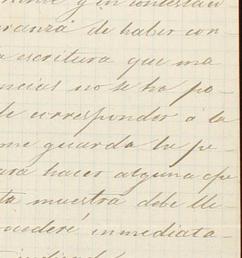 y en contestac
de haber con
escritura que ma
ncias no se ha po-
de corresponder á la
me guarda la pe
ara hacer alguna ope
ta muestra debe lle
ocederé inmediata